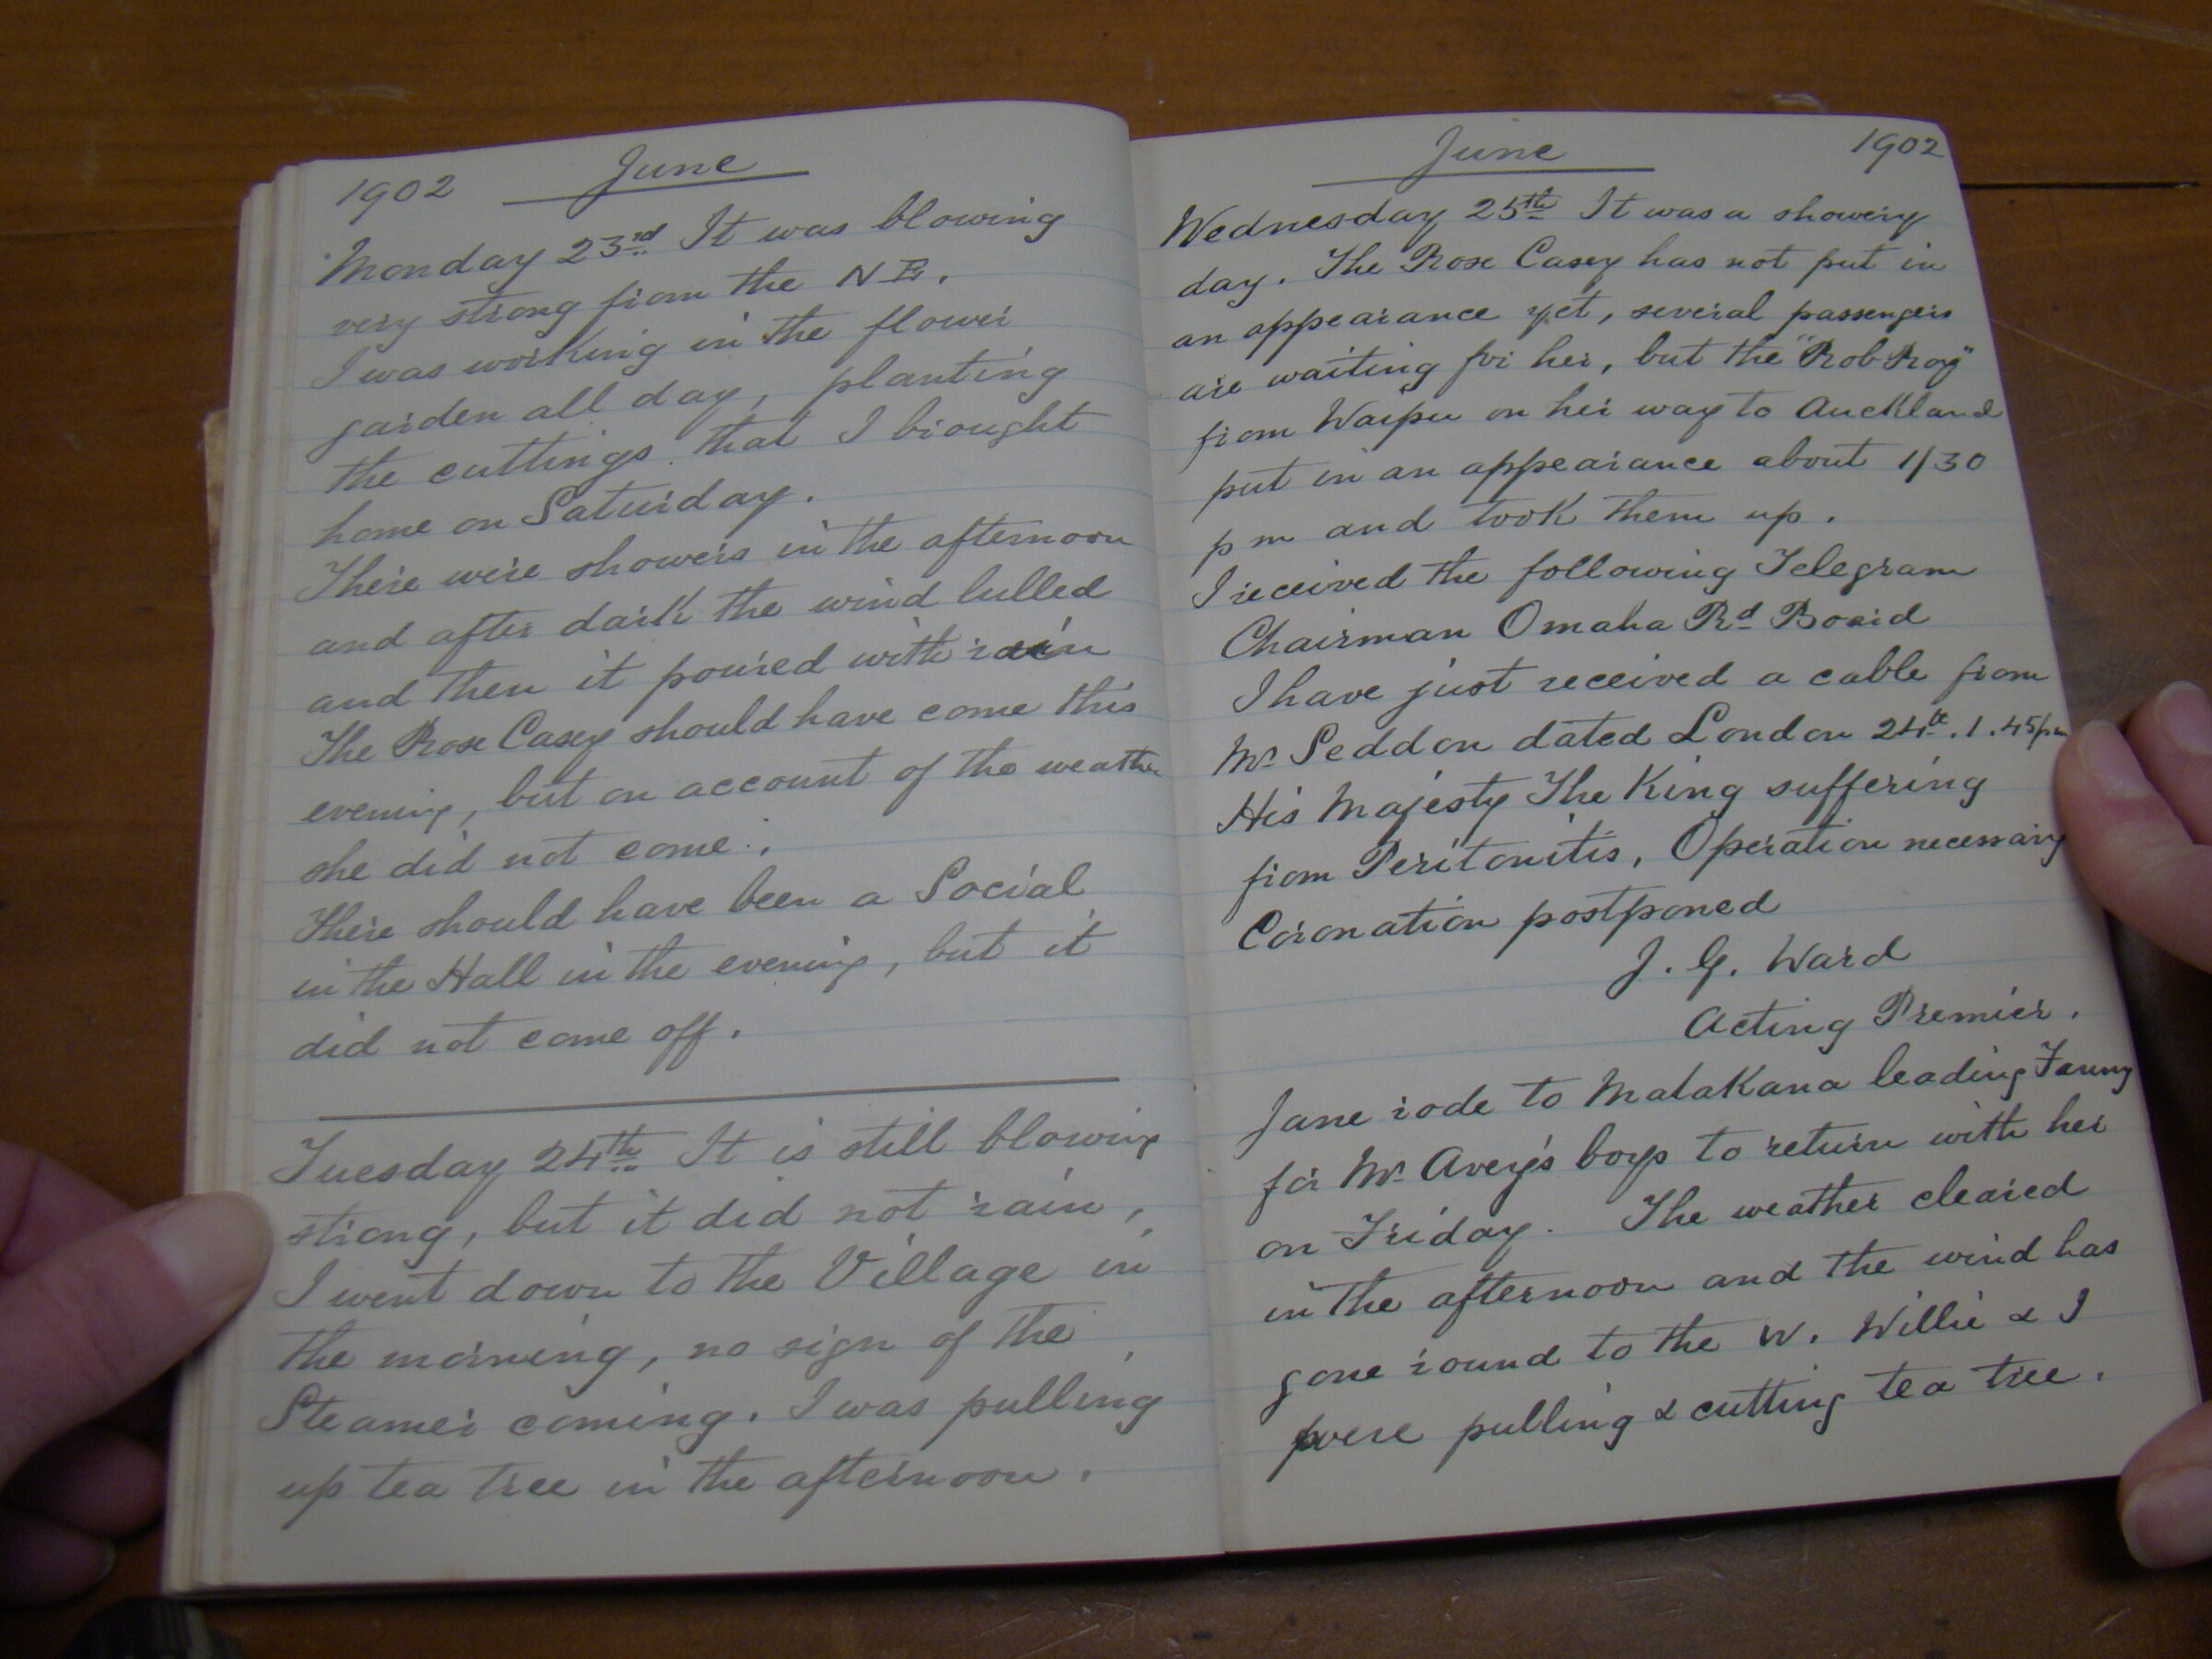 1902 June
Monday 23rd It was blowing
very strong from the N E.
I was working in the flower
garden all day, planting
the cuttings that I brought
home on Saturday.
There were showers in the afternoon
and after dark the wind lulled
and then it poured with rain
The Rose Casey should have come this
evening, but on account of the weather
she did not come.
There should have been a Social
in the Hall in the evening, but it
did not come off.
Tuesday 24th It is still blowing
strong, but it did not rain,
I went down to the Village in
the morning, no sign of the
Steamer coming. I was pulling
up tea tree in the afternoon.
June 1902
Wednesday 25th It was a showery
day. The Rose Casey has not put in
an appearance yet, several passengers
are waiting for her, but the "Rob Roy"
from Waipu on her way to Auckland
put in an appearance about 1/30
p m and took them up.
I received the following Telegram
Chairman Omaha Rd Board
I have just received a cable from
Mr Seddon dated London 24th. 1.45pm
His Majesty The King suffering
from Peritonitis, Operation necessary
Coronation postponed
J. G. Ward
Acting Premier.
Jane rode to Matakana leading Fanny
for Mr Avery's boys to return with her
on Friday. The weather cleared
in the afternoon and the wind has
gone round to the W. Willie & I
were pulling & cutting tea tree.